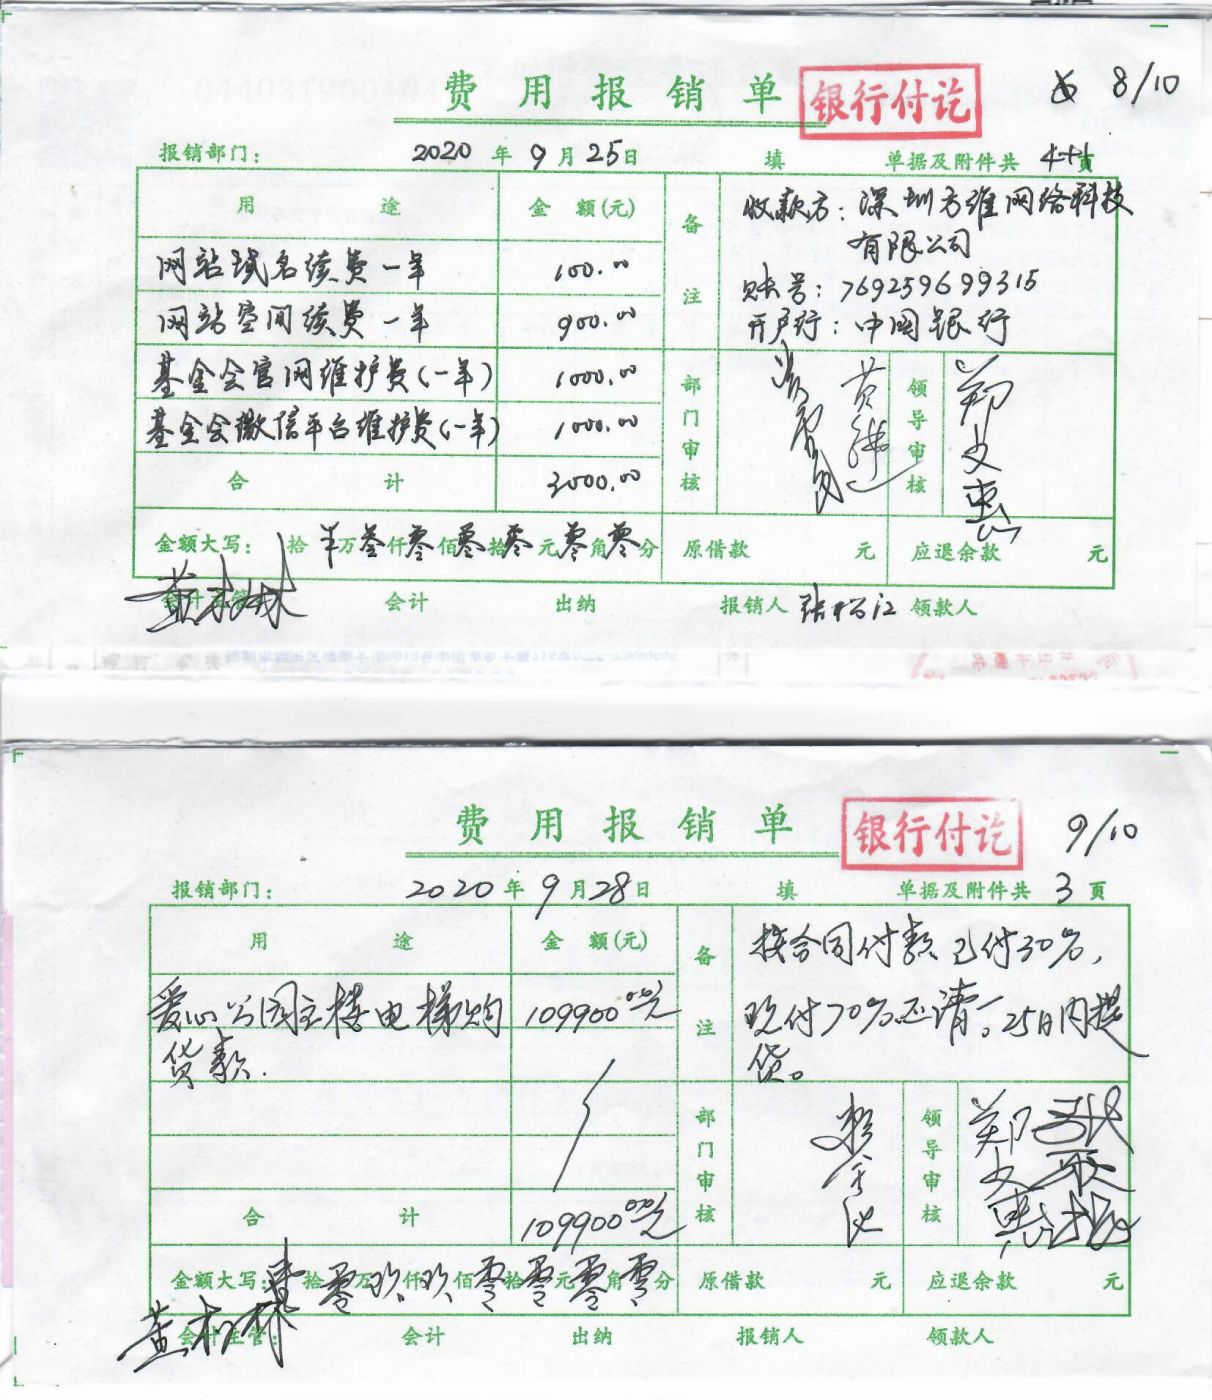 费用报销单
银行付讫
8/10
报销部门：
2020年9月25日
填
单据及附件共4+1页
用途
金额(元)
备注
收款方：深圳方维网络科技
有限公司
账号：769259699315
开户行：中国银行
网站域名续费一年
100.00
网站空间续费一年
900.00
基金会官网维护费(一年)
1000.00
基金会微信平台维护费(一年)
1000.00
合计
3000.00
部门审核
黄
领导审核
郑文惠
金额大写：拾 万叁仟零佰零拾零元零角零分
原借款 元
应退余款 元
会计主管
黄树林
会计
出纳
报销人
领款人
费用报销单
银行付讫
9/10
报销部门：
2020年9月28日
填
单据及附件共3页
用途
金额(元)
备注
按合同付款已付30%，
现付70%。 25日内提
货。
爱心公园主楼电梯购
货款.
109900.00元
合计
109900.00元
部门审核
领导审核
郑文惠
金额大写：壹拾零万玖仟玖佰零拾零元零角零分
原借款 元
应退余款 元
会计主管：
黄树林
会计
出纳
报销人
领款人